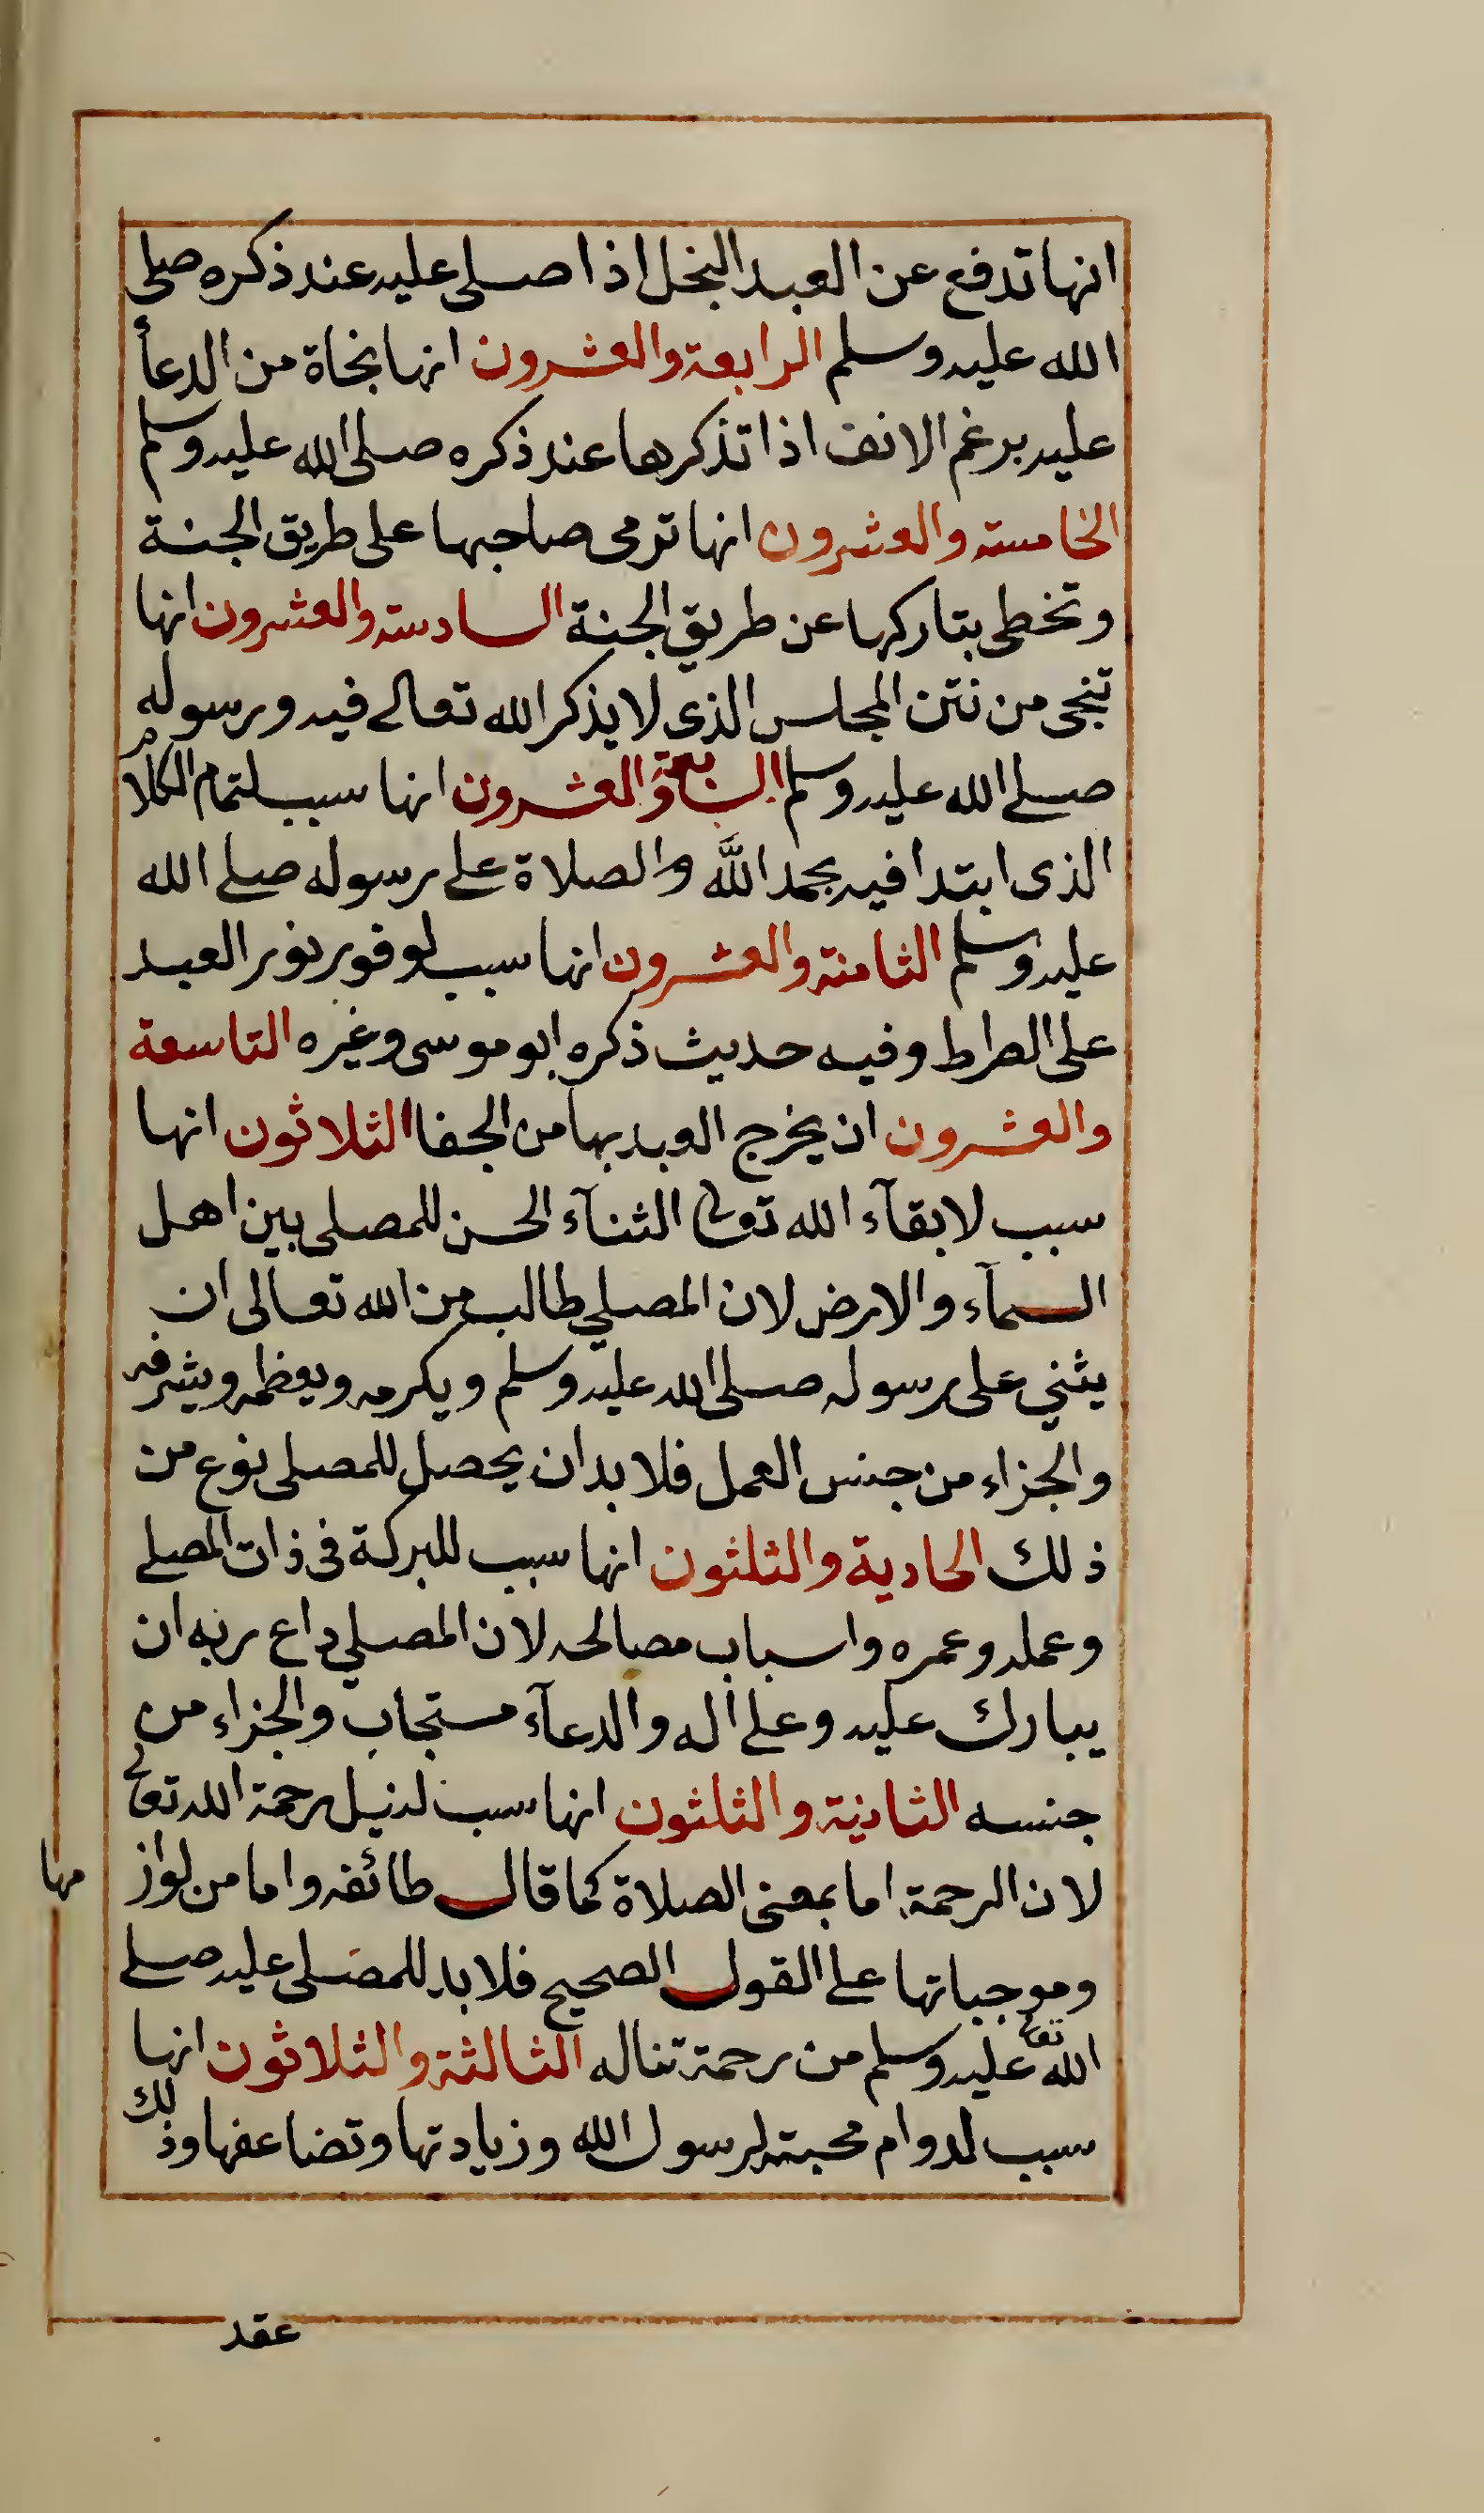 انها تدفع عن العبد البخل اذا صلى عليه عند ذكره صلى
الله عليه وسلم الرابعة والعشرون انها نجاة من الدعأ
عليه برغم الانف اذا تذكرها عند ذكره صلى الله عليه وسلم
الخامسة والعشرون انها ترمى صاحبها على طريق الجنة
وتخطى بتاركها عن طريق الجنة السادسة والعشرون انها
تنجى من نتن المجلس الذى لا يذكر الله تعالى فيه ورسوله
صلى الله عليه وسلم السابعة والعشرون انها سبب لتمام الكلام
الذى ابتدا فيه بحمد الله والصلاة على رسوله صلى الله
عليه وسلم الثامنة والعشرون انها سبب لوفور نور العبد
على الصراط وفيه حديث ذكره ابو موسى وغيره التاسعة
والعشرون ان يخرج العبد بها من الجفا الثلاثون انها
سبب لابقآء الله تعالى الثنآء الحسن للمصلى بين اهل
السمآء والارض لان المصلي طالب من الله تعالى ان
يثني على رسوله صلى الله عليه وسلم ويكرمه ويعظمه ويشرفه
والجزاء من جنس العمل فلا بد ان يحصل للمصلى نوع من
ذلك الحادية والثلثون انها سبب للبركة فى ذات المصلى
وعمله وعمره واسباب مصالحه لان المصلي داع ربه ان
يبارك عليه وعلى اله والدعآء مستجاب والجزاء من
جنسه الثانية والثلثون انها سبب لنيل رحمة الله تعالى
لان الرحمة اما بمعنى الصلاة كما قال طائفه واما من لوازمها
وموجباتها على القول الصحيح فلا بد للمصلى عليه صلى
الله تعالى عليه وسلم من رحمة تناله الثالثة والثلاثون انها
سبب لدوام محبته لرسول الله وزيادتها وتضاعفها وذلك
عقد